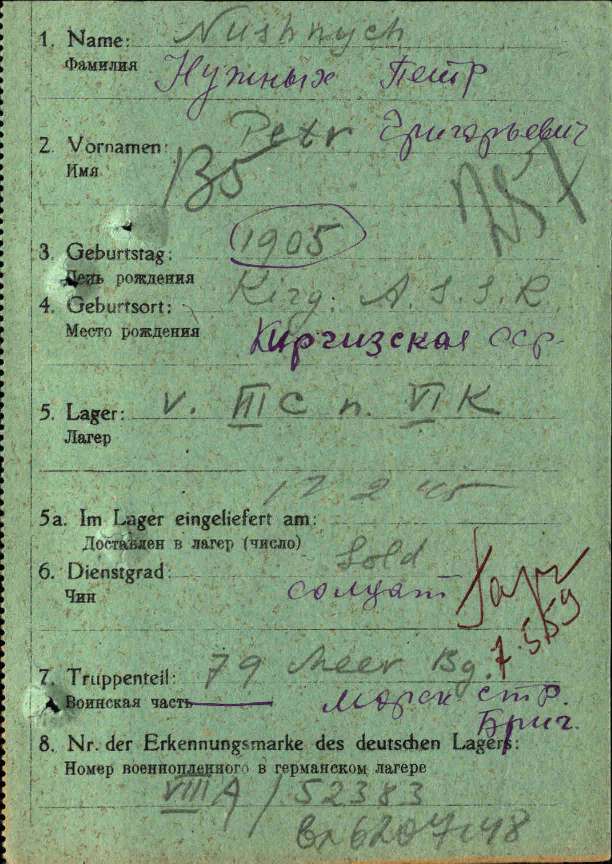 1. Name: Nushnych
Фамилия Нужных Петр
2. Vornamen: Petr Григорьевич
Имя
B5
3. Geburtstag: 1905
День рождения
4. Geburtsort: Kirg. A. S. S. R.
Место рождения Киргизская сср
5. Lager: v. III C n. VI K
Лагер
12 2 45
5a. Im Lager eingeliefert am:
Доставлен в лагер (число)
6. Dienstgrad: Sold
Чин солдат
7.5.59
7. Truppenteil: 79 Meer Bg.
Воинская часть морск стр.
Бриг.
8. Nr. der Erkennungsmarke des deutschen Lagers:
Номер военнопленного в германском лагере
VIII A / 52383